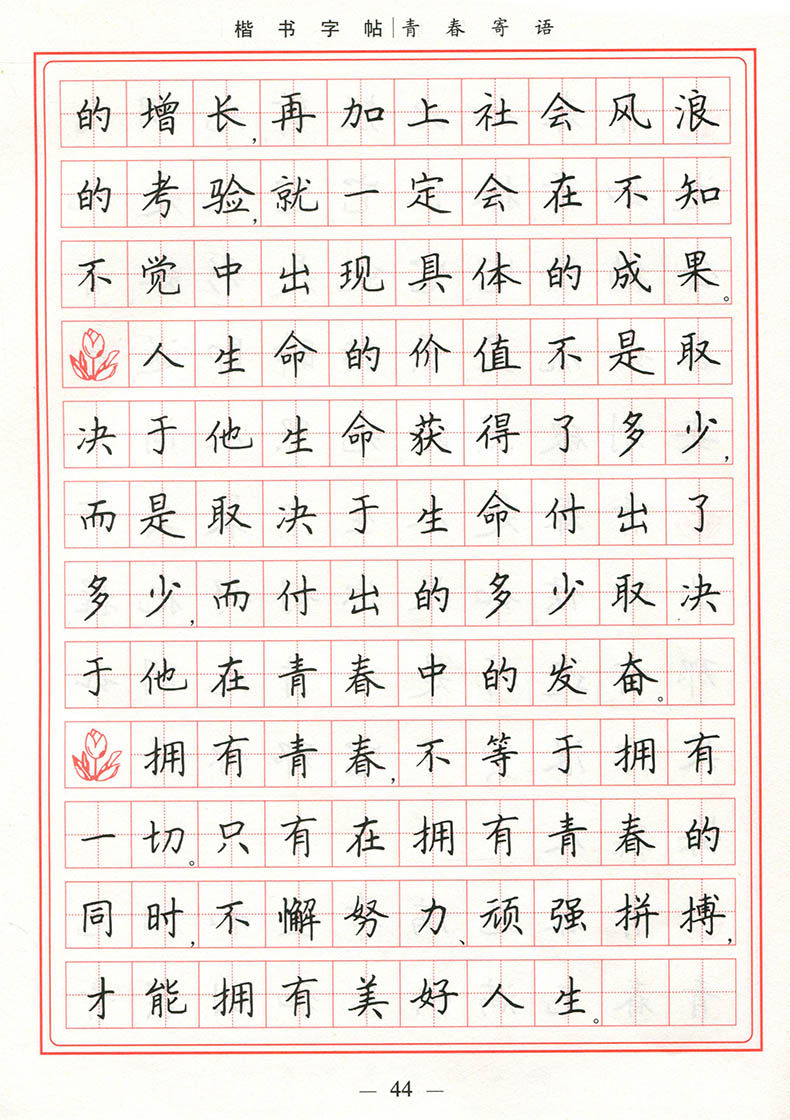 楷书字帖|青春寄语
的增长,再加上社会风浪
的考验,就一定会在不知
不觉中出现具体的成果。
人生命的价值不是取
决于他生命获得了多少,
而是取决于生命付出了
多少,而付出的多少取决
于他在青春中的发奋。
拥有青春,不等于拥有
一切。只有在拥有青春的
同时,不懈努力、顽强拼搏,
才能拥有美好人生。
— 44 —